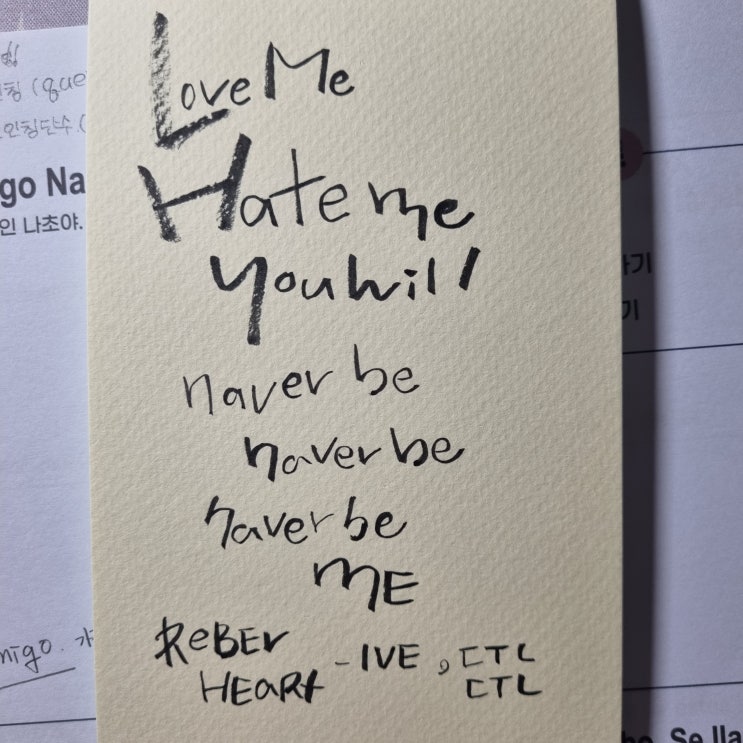 Love Me
Hate me
you will
naver be
naver be
naver be
ME
ReBEr
HEaRt - IVE , CTL
CTL
go Na
인 나초야.
인칭단수.(
칭 (que
nigo. 가
기
기
ho. Se lla